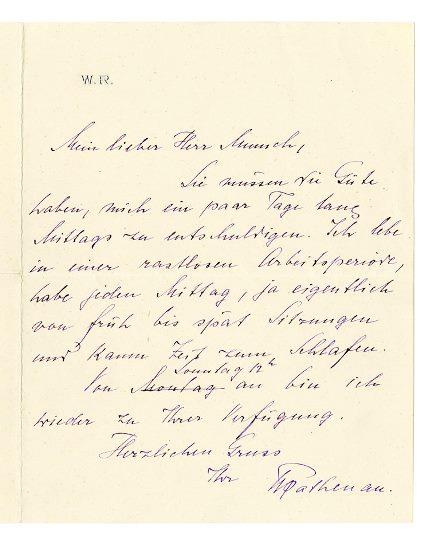 W. R.
Mein lieber Herr Munsch,
Sie müssen die Güte
haben, mich ein paar Tage lang
Mittags zu entschuldigen. Ich lebe
in einer rastlosen Arbeitsperiode,
habe jeden Mittag, ja eigentlich
von früh bis spät Sitzungen
und kaum Zeit zum Schlafen.
Sonntag 12h
Von Montag an bin ich
wieder zu Ihrer Verfügung.
Herzlichen Gruss
Ihr WRathenau.